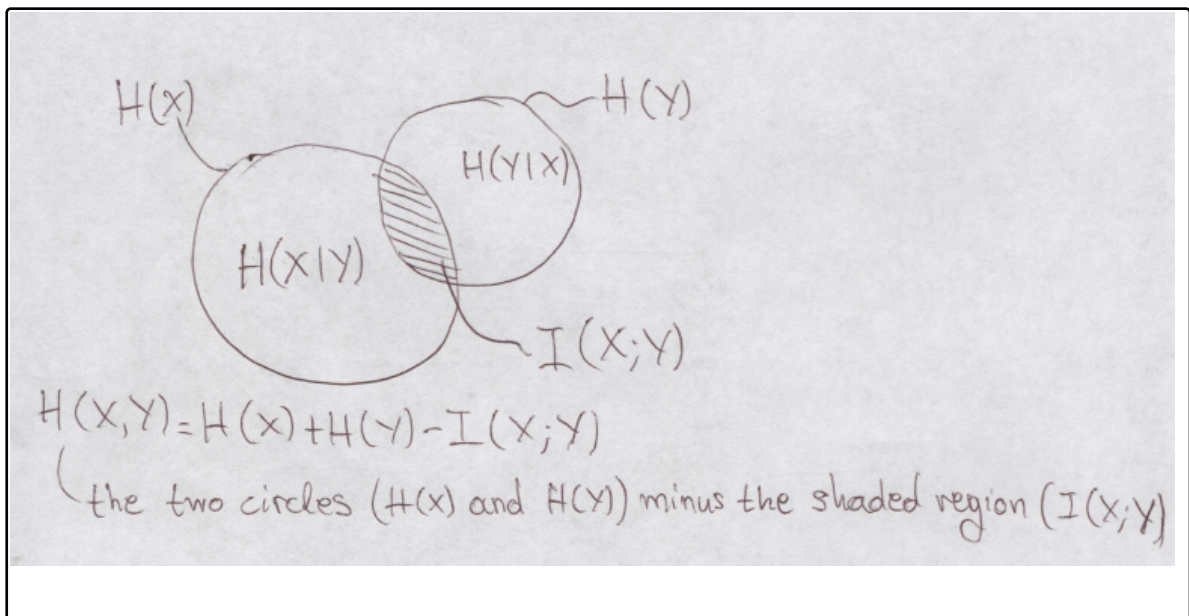 H(X)
H(Y)
H(Y|X)
H(X|Y)
I(X;Y)
H(X,Y)=H(X)+H(Y)-I(X;Y)
the two circles (H(X) and H(Y)) minus the shaded region (I(X;Y)